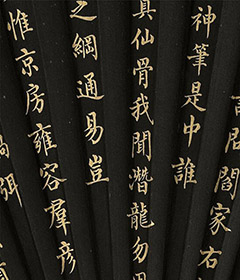 居閻家右
神筆是中誰
真仙骨我聞潛龍勿
之綱通易豈
惟京房雍容羣彥
弭